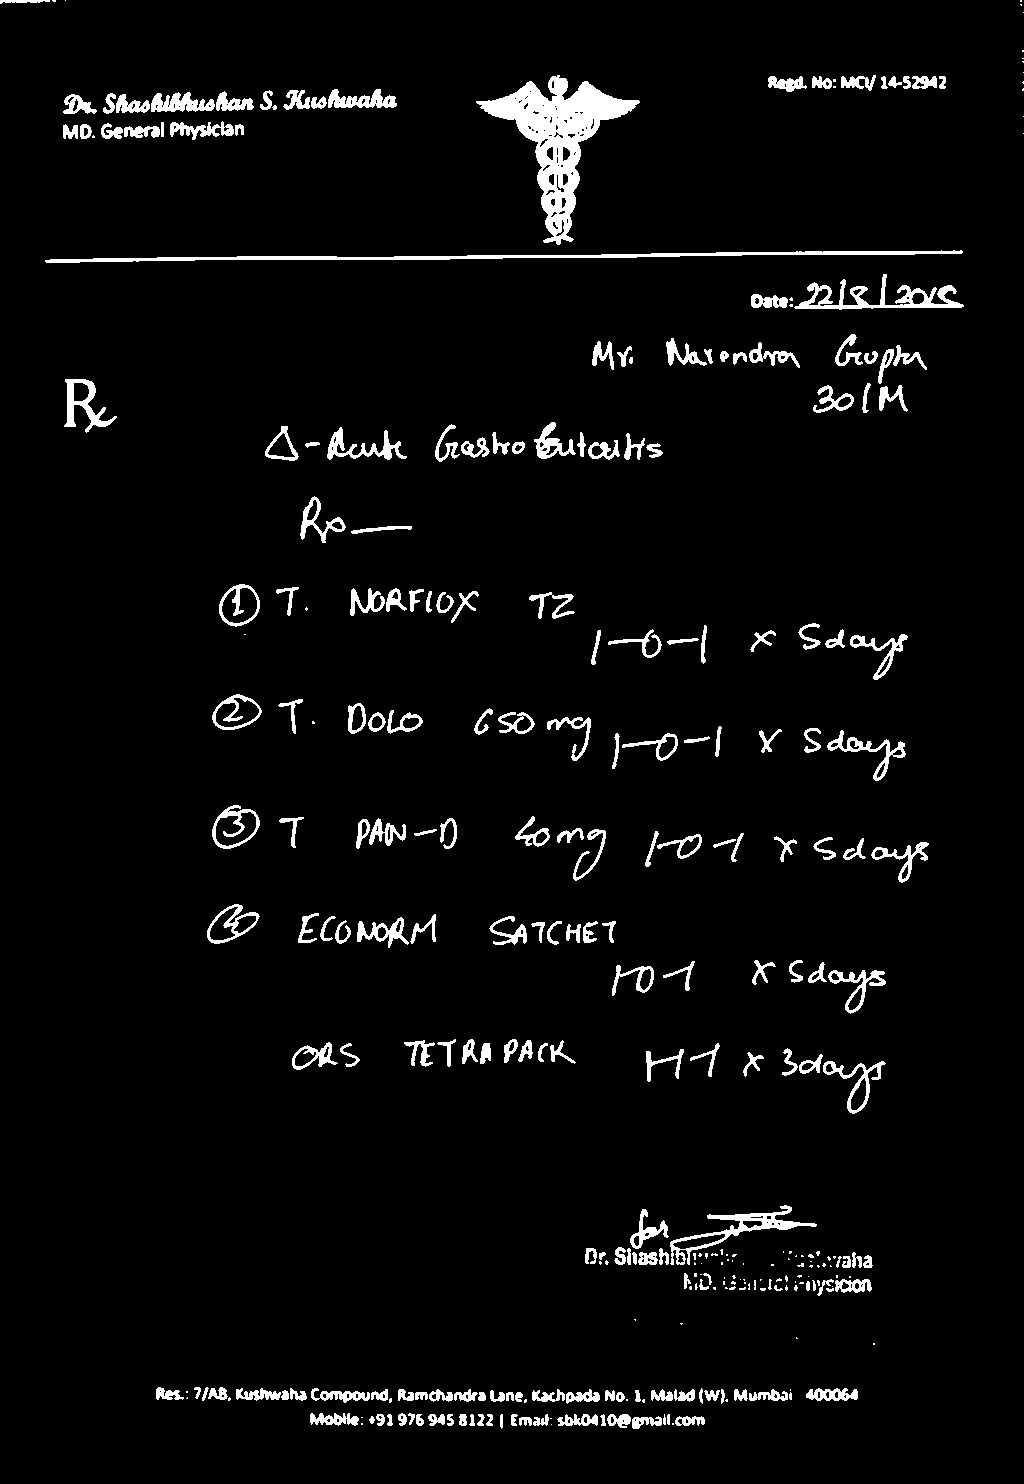 Dr. Shashibhushan S. Kushwaha
MD. General Physician
Regd. No: MCI/ 14-52942
Date: 22/8/2018
Mr. Narendra Gupta
30/M
Rx
Δ - Acute Gastro
Rp —
① T. NORFLOX TZ
1-0-1 x 5days
② T. DOLO 650mg 1-0-1 x 5days
③ T PAN-D 40mg 1-0-1 x 5days
④ ECONORM SATCHET
1-0-1 x 5days
ORS TETRAPACK 1-1-1 x 3days
for
Dr. Shashibhushan S. Kushwaha
MD. General Physicion
Res.: 7/AB, Kushwaha Compound, Ramchandra Lane, Kachpada No. 1, Malad (W), Mumbai 400064
Mobile: +91 976 945 8122 | Email: sbk0410@gmail.com